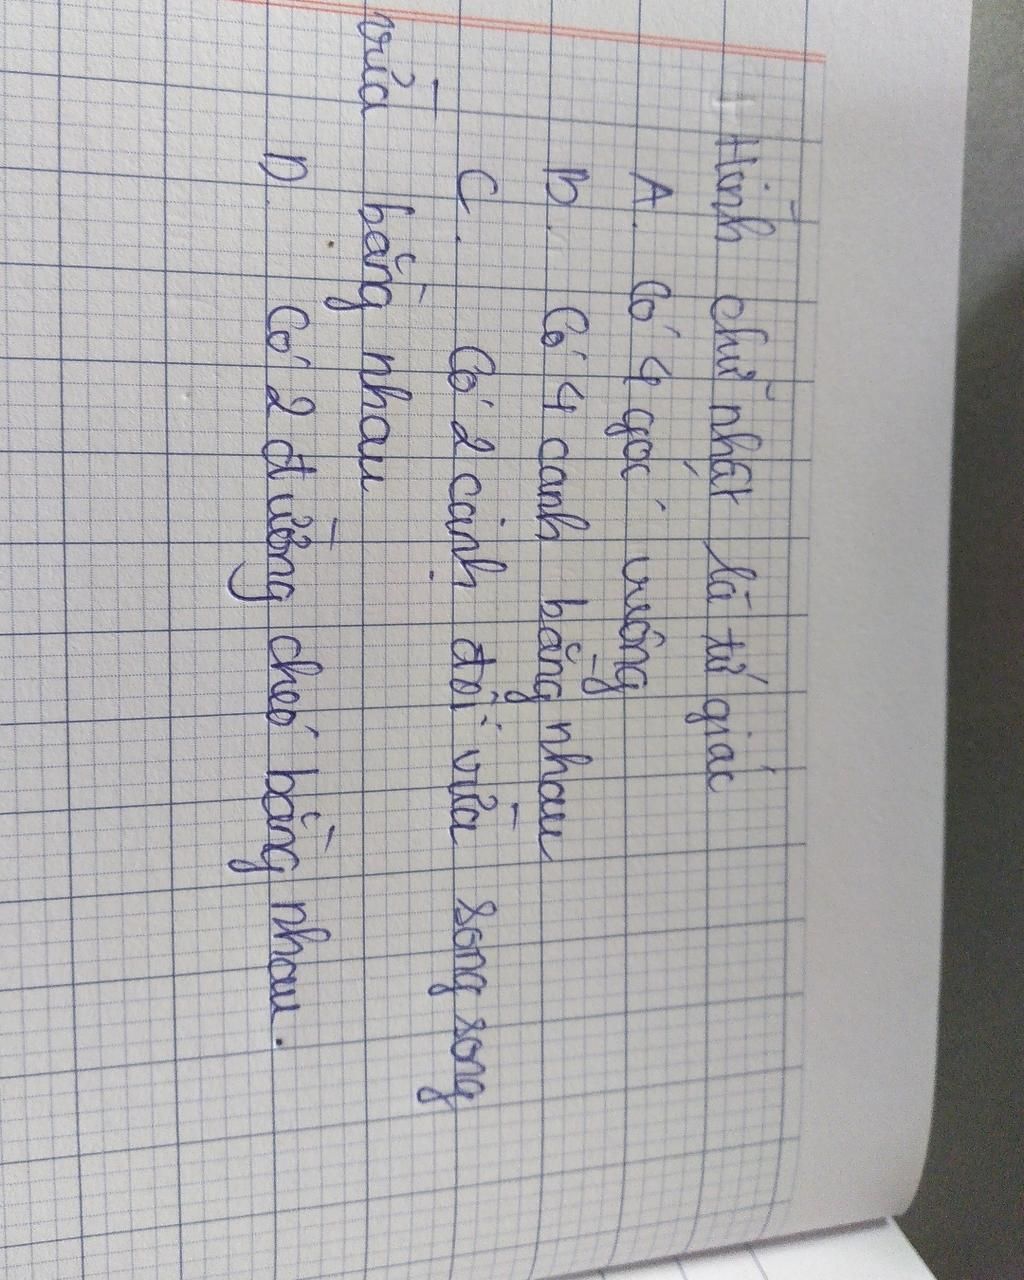 + Hình chữ nhật là tứ giác
A. Có 4 góc vuông
B. Có 4 cạnh bằng nhau
C. Có 2 cạnh đối vừa song song
vừa bằng nhau
D. Có 2 đường chéo bằng nhau.